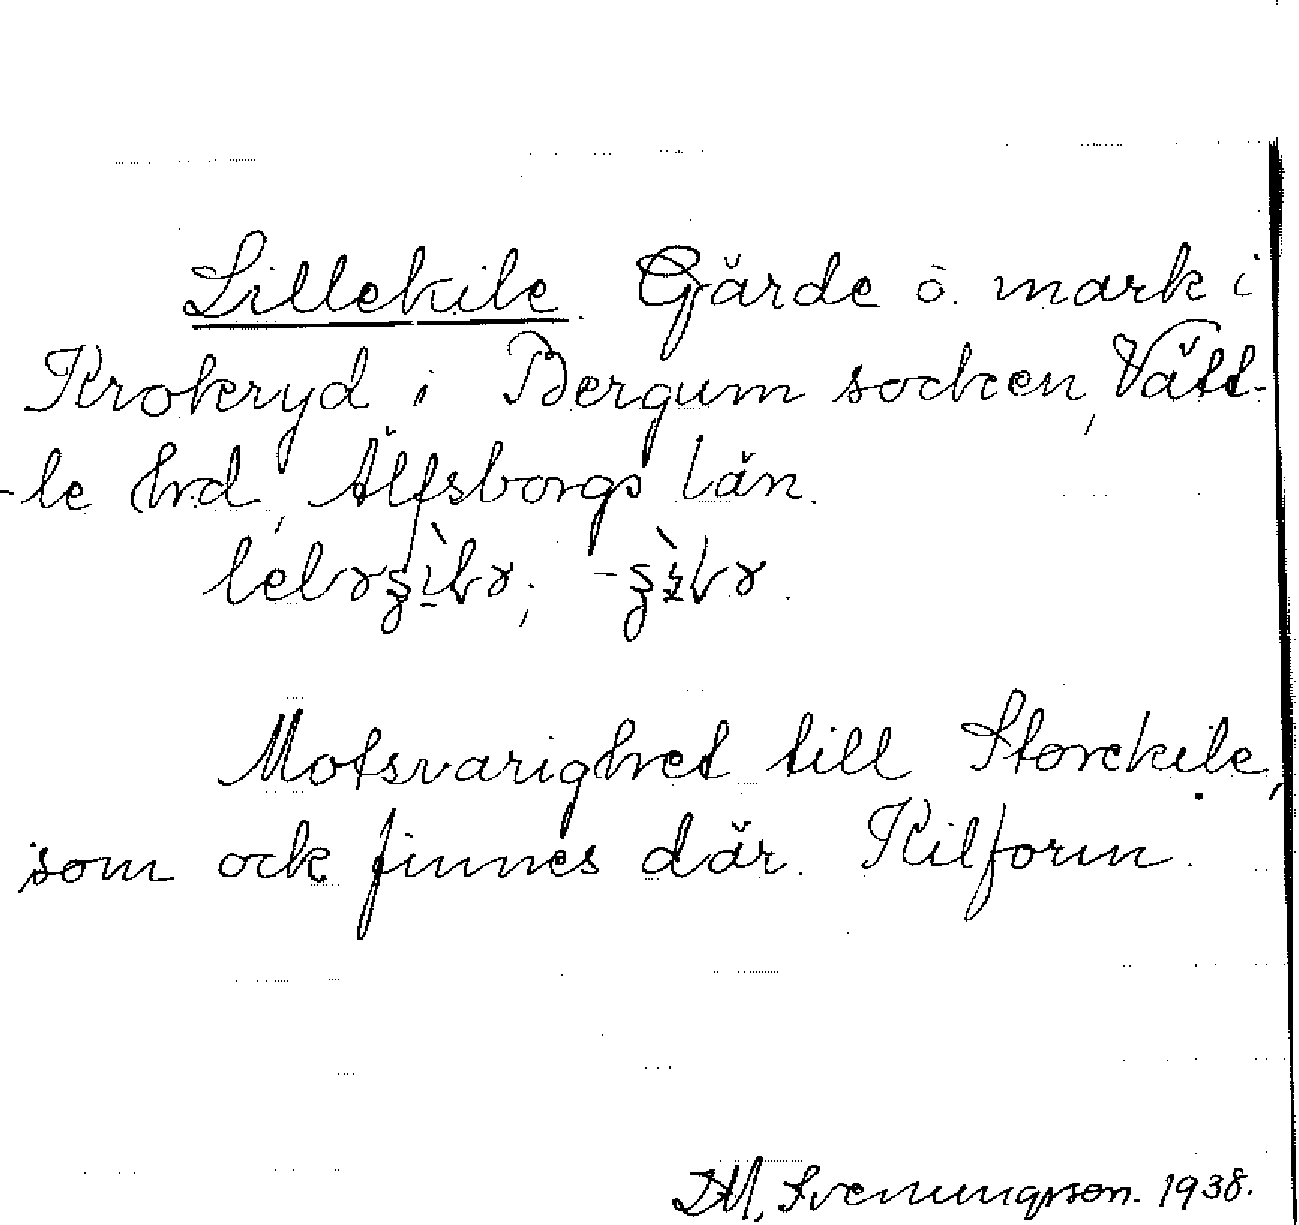 Lillekile. Gärde o. mark i
Krokryd i Bergum socken, Vätt-
-le hrd, Älfsborgs län.
Motsvarighet till Storekile,
som ock finnes där. Kilform.
D.M. Svenungsson. 1938.